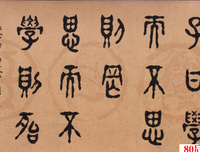 子曰學
而不思
則罔
思而不
學則殆